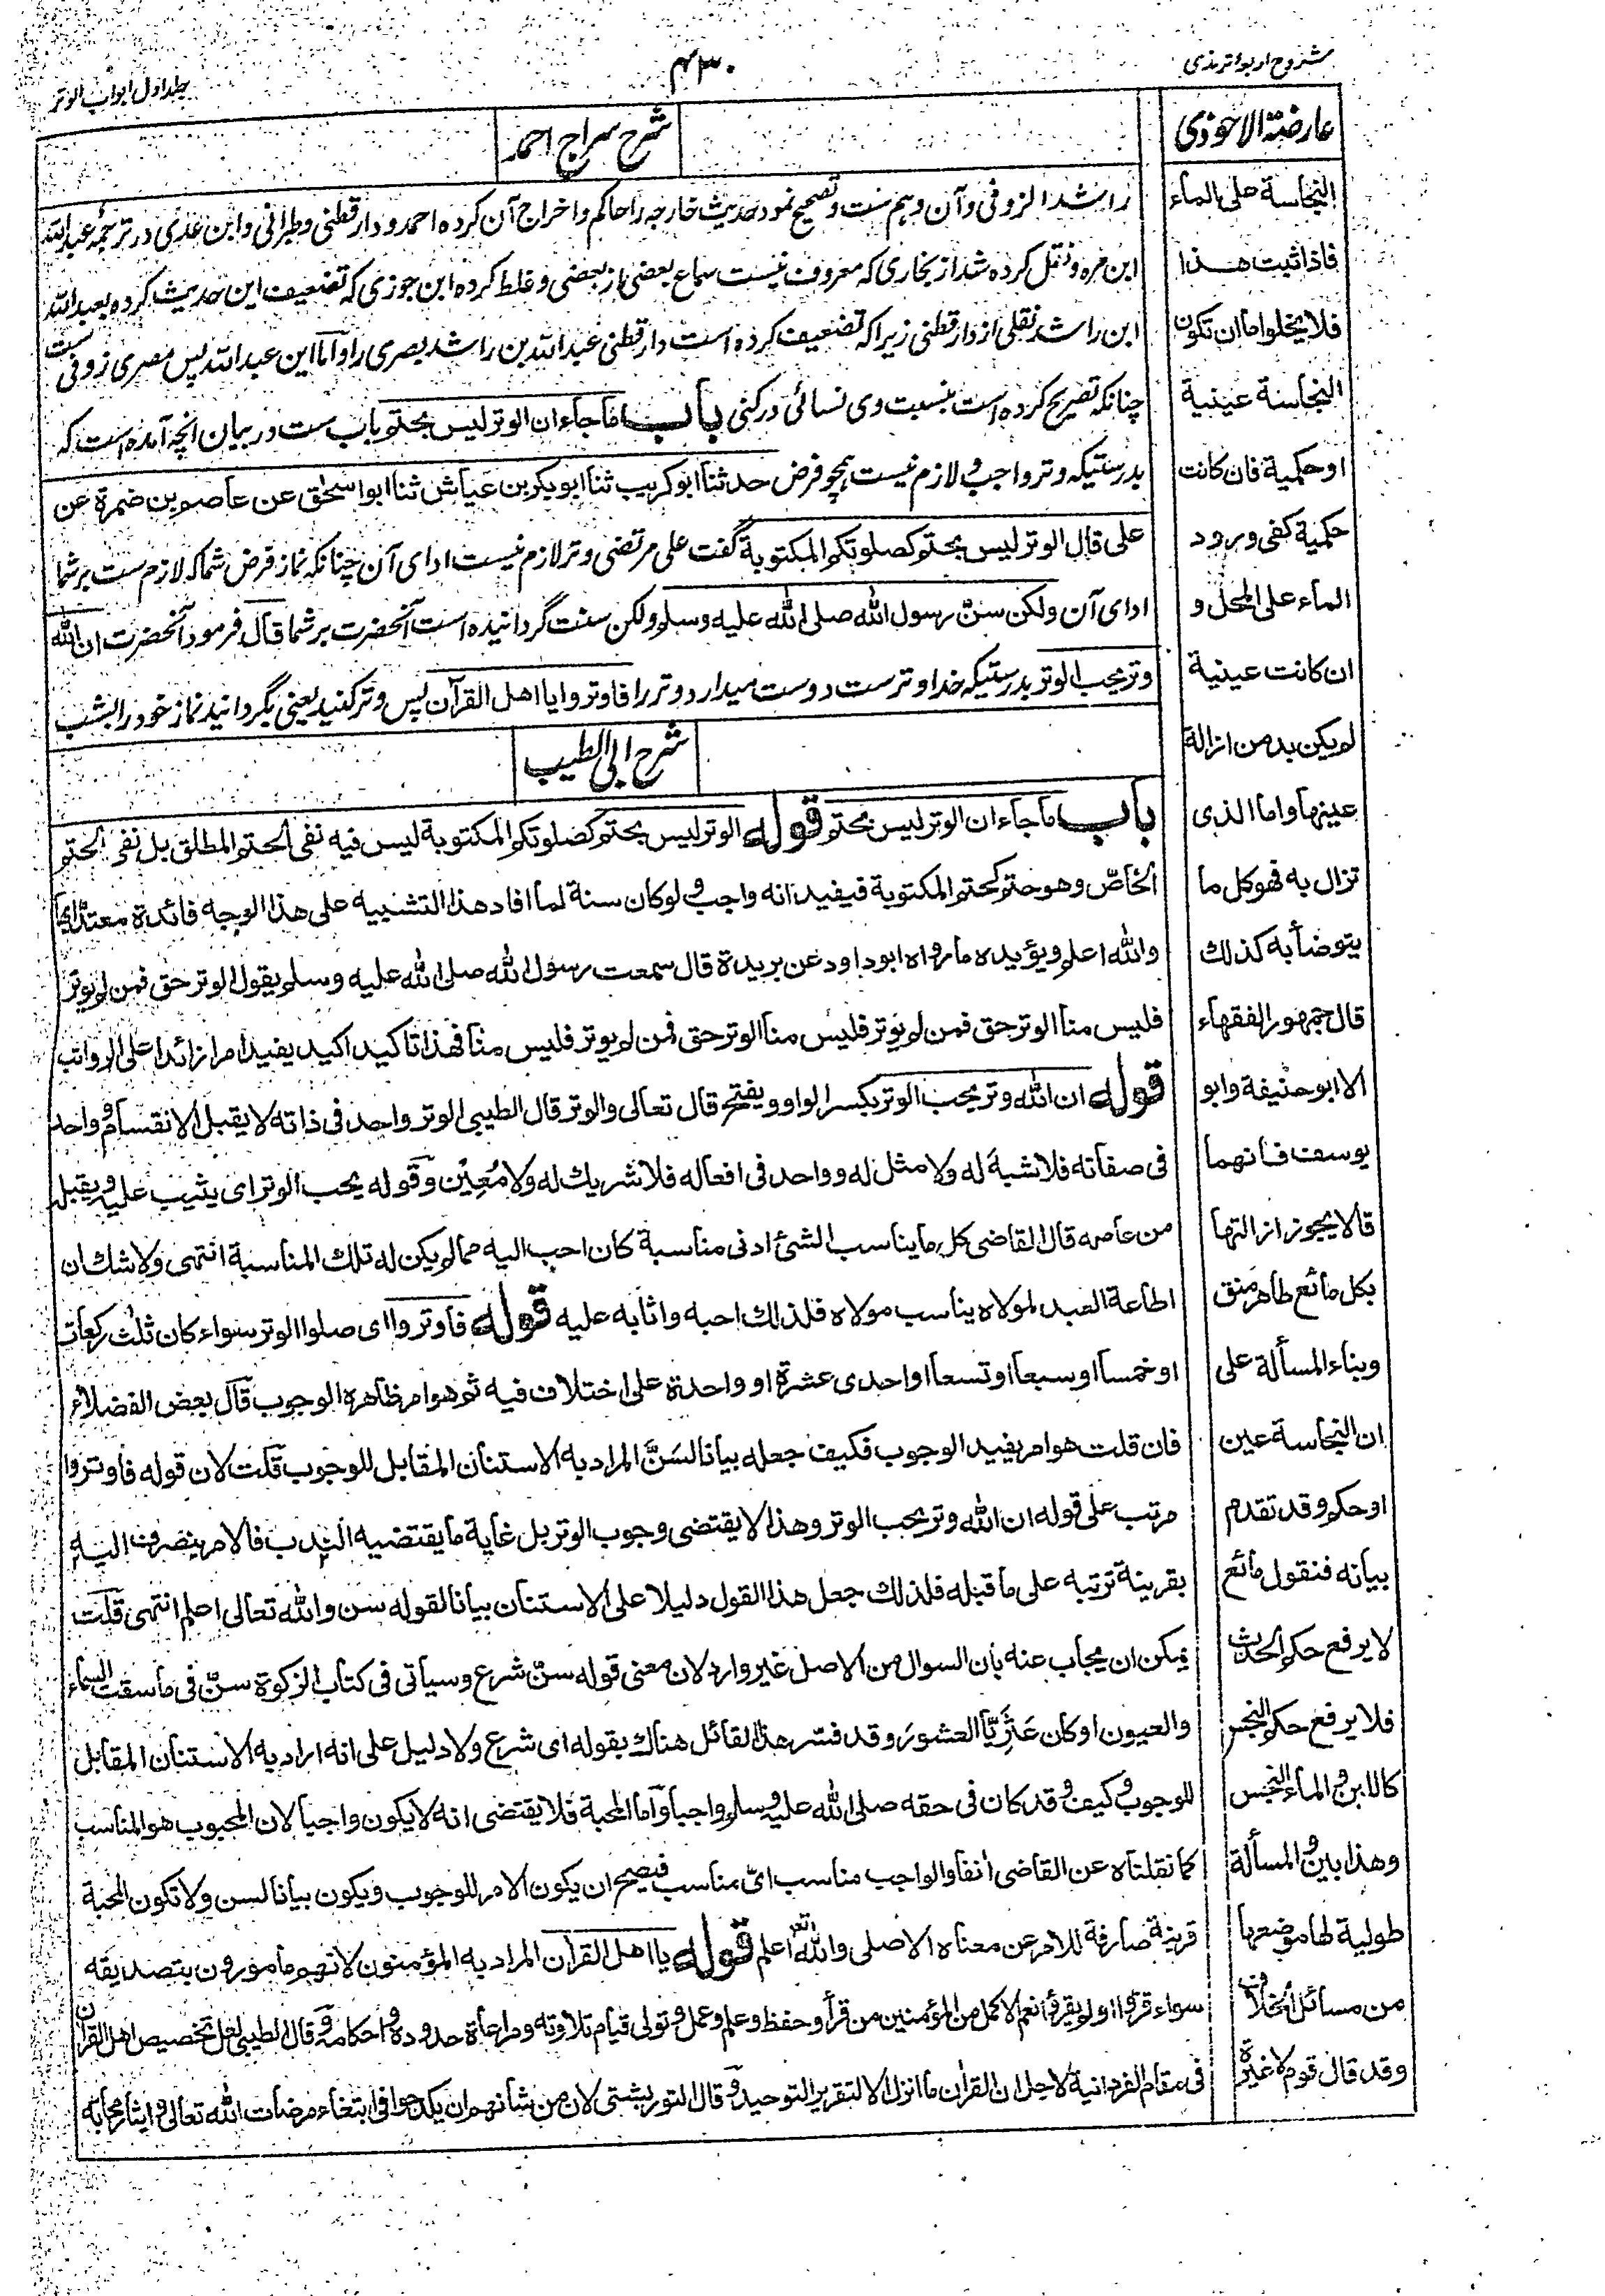 شروح اربعه ترمذی
۴۳۰
جلد اول ابواب الوتر
عارضة الاحوذی
النجاسة علی الماء
فاذا ثبت هذا
فلا یخلوا اما ان تکون
النجاسة عینیة
او حکمیة فان کانت
حکمیة کفی ورود
الماء علی المحل و
ان کانت عینیة
لم یکن بد من ازالة
عینها واما الذی
تزال به فهو کل ما
یتوضأ به کذلك
قال جمهور الفقهاء
الا ابو حنیفة وابو
یوسف فانهما
قالا یجوز ازالتها
بکل مائع طاهر منق
وبناء المسألة علی
ان النجاسة عین
او حکم وقد تقدم
بیانه فنقول مائع
لا یرفع حکم الحدث
فلا یرفع حکم النجس
کاللبن والماء النجس
وهذا بین والمسألة
طولیة لها موضعها
من مسائل الخلاف
وقد قال قوم لا غیره
شرح سراج احمد
راشد الزوفی وآن وہم ست وتصحیح نمود حدیث خارجہ را حاکم واخراج آن کردہ احمد ودارقطنی وطبرانی وابن عدی در ترجمۂ عبداللہ
ابن مرہ ونقل کردہ شد از بخاری کہ معروف نیست سماع بعضی از بعضی وغلط کردہ ابن جوزی کہ تضعیف این حدیث کردہ بعبداللہ
ابن راشد نقلی از دارقطنی زیرا کہ تضعیف کردہ است دارقطنی عبداللہ بن راشد بصری را واما این عبداللہ پس مصری زوفی ست
چنانکہ تصریح کردہ است بنسبت وی نسائی در کنی باب ما جاء ان الوتر لیس بحتم باب ست در بیان انچہ آمدہ است کہ
بدرستیکہ وتر واجب ولازم نیست ہمچو فرض حدثنا ابو کریب ثنا ابو بکر بن عیاش ثنا ابو اسحق عن عاصم بن ضمرة عن
علی قال الوتر لیس بحتم کصلوتکم المکتوبة گفت علی مرتضی وتر لازم نیست ادای آن چنانکہ نماز فرض شما کہ لازم ست بر شما
ادای آن ولکن سنّ رسول الله صلی الله علیه وسلم ولکن سنت گردانیدہ است آنحضرت بر شما قال فرمود آنحضرت ان الله
وتر یحب الوتر بدرستیکہ خدا وترست دوست میدارد وتر را فاوتروا یا اهل القرآن پس وتر کنید یعنی بگردانید نماز خود را بشب
شرح ابی الطیب
باب ما جاء ان الوتر لیس بحتم قوله الوتر لیس بحتم کصلوتکم المکتوبة لیس فیه نفی الحتم المطلق بل نفی الحتم
الخاصّ وهو حتم کحتم المکتوبة فیفید انه واجب ولو کان سنة لما افاد هذا التشبیه علی هذا الوجه فائدة معتدًّا بها
والله اعلم ویؤیده ما رواه ابو داود عن بریدة قال سمعت رسول الله صلی الله علیه وسلم یقول الوتر حق فمن لم یوتر
فلیس منا الوتر حق فمن لم یوتر فلیس منا الوتر حق فمن لم یوتر فلیس منا فهذا تاکید اکید یفید امرا زائدا علی الرواتب
قوله ان الله وتر یحب الوتر بکسر الواو ویفتح قال تعالی والوتر قال الطیبی الوتر واحد فی ذاته لا یقبل الانقسام وواحد
فی صفاته فلا شبه له ولا مثل له وواحد فی افعاله فلا شریك له ولا مُعِیْن وقوله یحب الوتر ای یثیب علیه ویقبله
من عامله قال القاضی کل ما یناسب الشئ ادنی مناسبة کان احب الیه مما لم یکن له تلك المناسبة انتهی ولا شك ان
اطاعة العبد لمولاه یناسب مولاه فلذلك احبه واثابه علیه قوله فاوتروا ای صلوا الوتر سواء کان ثلث رکعات
او خمسا او سبعا او تسعا او احدی عشرة او واحدة علی اختلاف فیه ثم هو امر ظاهره الوجوب قال بعض الفضلاء
فان قلت هو امر یفید الوجوب فکیف جعله بیانا لسَنَّ المراد به الاستنان المقابل للوجوب قلت لان قوله فاوتروا
مرتب علی قوله ان الله وتر یحب الوتر وهذا لا یقتضی وجوب الوتر بل غایة ما یقتضیه الندب فالامر ینصرف الیه
بقرینة ترتبه علی ما قبله فلذلك جعل هذا القول دلیلا علی الاستنان بیانا لقوله سن والله تعالی اعلم انتهی قلت
یمکن ان یجاب عنه بان السوال من الاصل غیر وارد لان معنی قوله سنّ شرع وسیاتی فی کتاب الزکوة سنّ فی ما سقت السماء
والعیون او کان عَثَرِیًّا العشورَ وقد فسّر هذا القائل هناك بقوله ای شرع ولا دلیل علی انه اراد به الاستنان المقابل
للوجوب وکیف وقد کان فی حقه صلی الله علیه وسلم واجبا وأما المحبة فلا یقتضی انه لا یکون واجبا لان المحبوب هو المناسب
کما نقلناه عن القاضی أنفا والواجب مناسب ایّ مناسب فیصح ان یکون الامر للوجوب ویکون بیانا لسن ولا تکون المحبة
قرینة صارفة للامر عن معناه الاصلی والله تعالی اعلم قوله یا اهل القرآن المراد به المؤمنون لانهم مامورون بتصدیقه
سواء قرؤا او لم یقرؤا نعم الاکمل من المؤمنین من قرأ وحفظ وعلم وعمل وتولی قیام تلاوته ومراعاة حدوده واحکامه وقال الطیبی لعل تخصیص اهل القرآن
فی مقام الفردانیة لاجل ان القرآن ما انزل الا لتقریر التوحید وقال التوربشتی لان من شأنهم ان یکدحوا فی ابتغاء مرضات الله تعالی وایثار محابّه